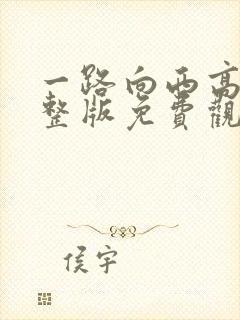 一路向西高
整版免費觀
侯宇